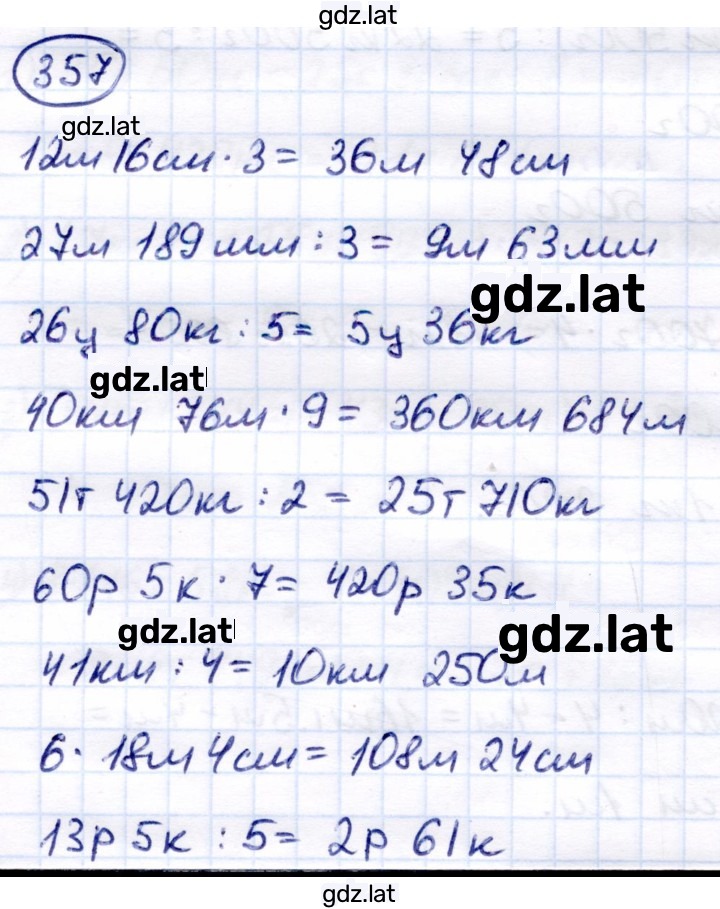 gdz.lat
357
gdz.lat
12м 16см · 3 = 36м 48см
27м 189мм : 3 = 9м 63мм
gdz.lat
26ц 80кг : 5 = 5ц 36кг
gdz.lat
40км 76м · 9 = 360км 684м
51т 420кг : 2 = 25т 710кг
60р 5к · 7 = 420р 35к
gdz.lat gdz.lat
41км : 4 = 10км 250м
6 · 18м 4см = 108м 24см
13р 5к : 5 = 2р 61к
gdz.lat